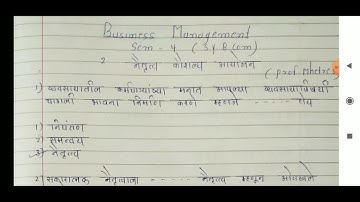 Business Management
Sem - 4 ( S Y B Com)
2 नेतृत्व कौशल्य आयोजन
( prof Mhetres
1) व्यवसायातील कर्मचाऱ्यांच्या मनात आपल्या व्यवसायाविषयी
चांगली भावना निर्माण करणे म्हणजे ------ होय
1) नियंत्रण
2) समन्वय
3) नेतृत्व
2 सकारात्मक नेतृत्वाला ------ नेतृत्व म्हणून ओळखले